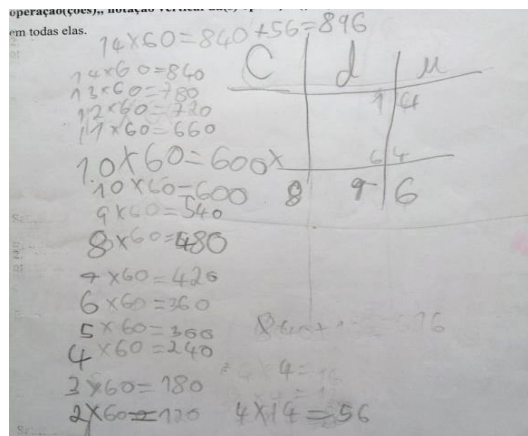 operação(ções),, notação vertical da(s)
em todas elas.
14×60=840+56=896
14×60=840
13×60=780
12×60=720
11×60=660
10×60=600
10×60=600
9×60=540
8×60=480
7×60=420
6×60=360
5×60=300
4×60=240
3×60=180
2×60=120
C d u
1 4
× 6 4
8 9 6
4×14=56